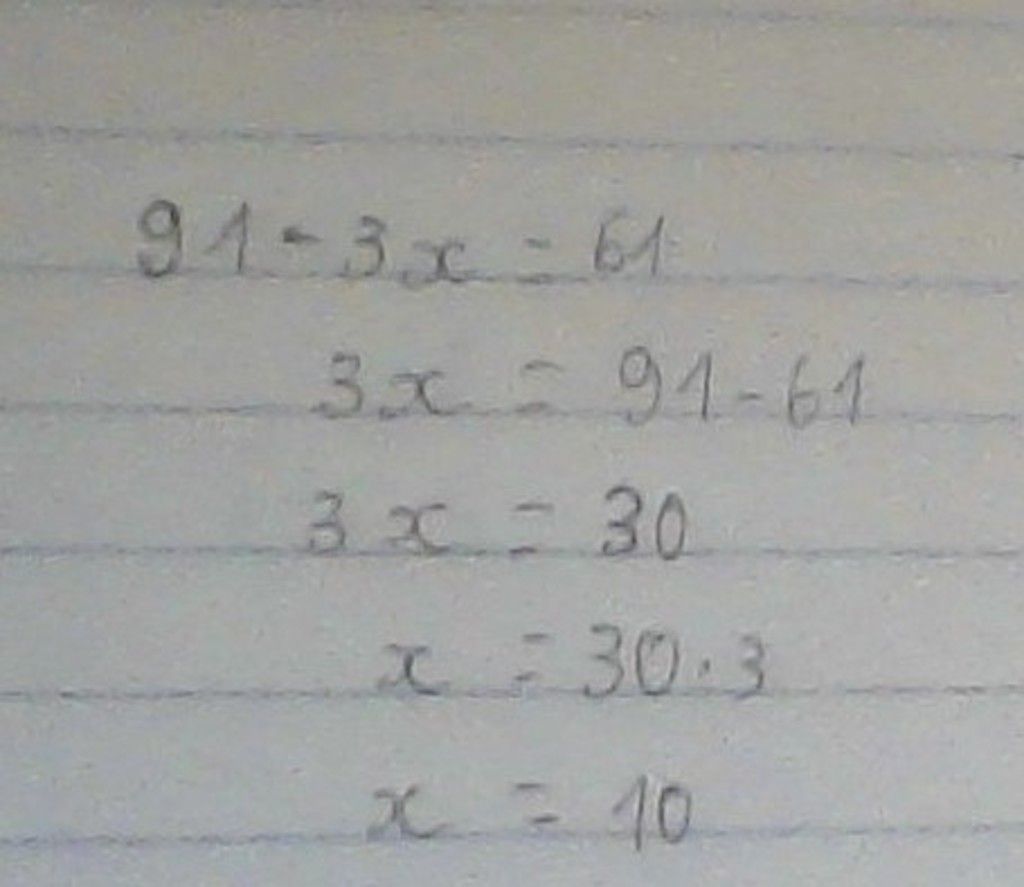 91 - 3x = 61
3x = 91 - 61
3x = 30
x = 30 · 3
x = 10